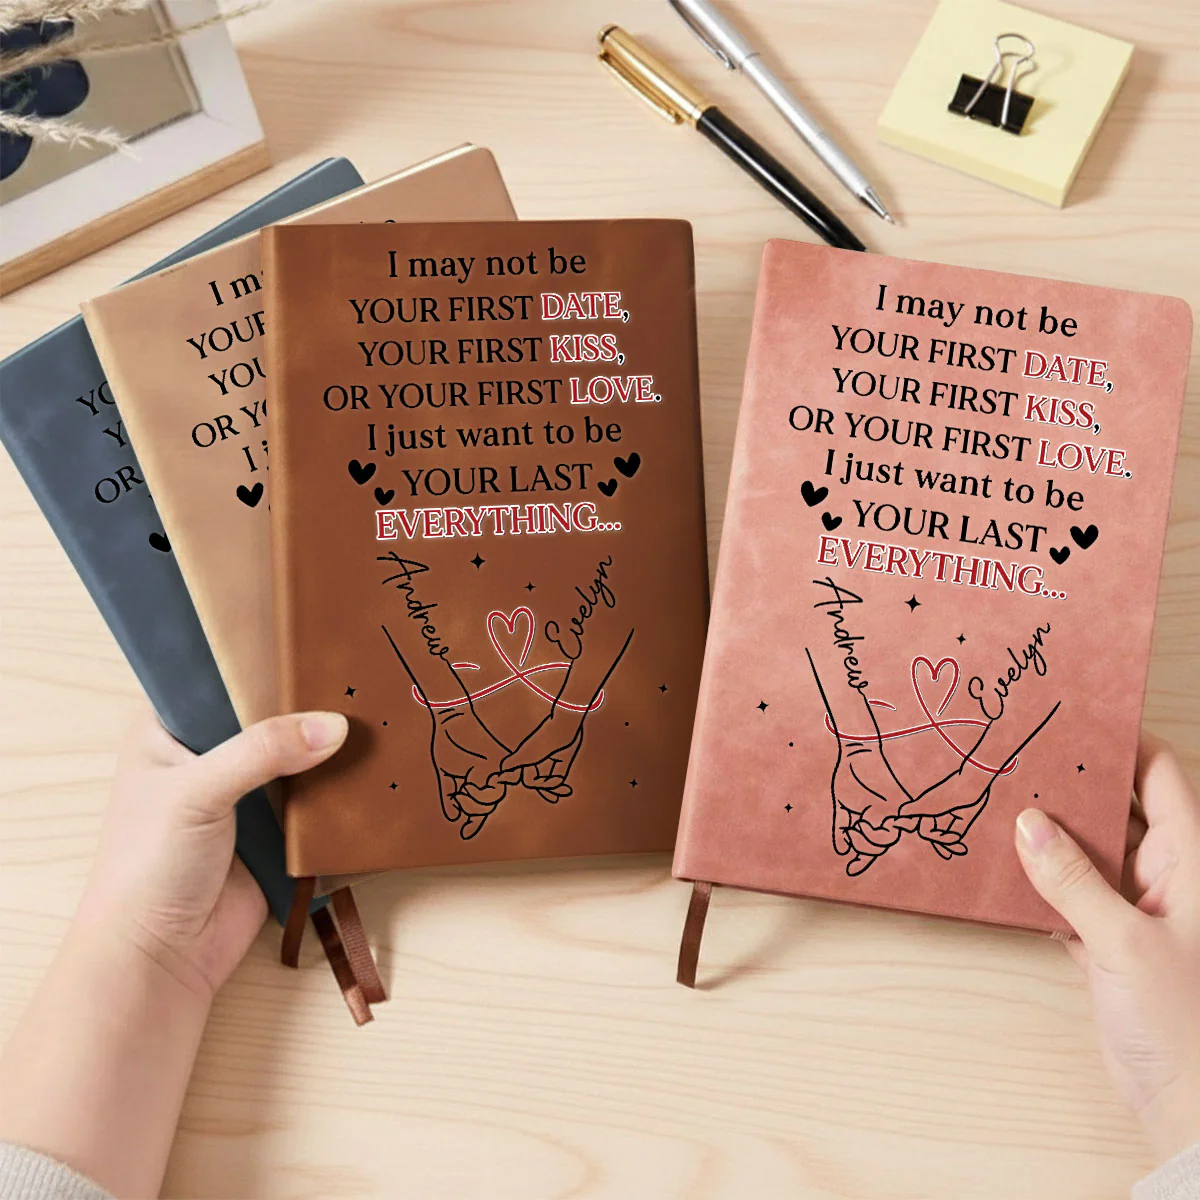 I may not be
YOUR FIRST DATE,
YOUR FIRST KISS,
OR YOUR FIRST LOVE.
I just want to be
YOUR LAST
EVERYTHING...
Andrew
Evelyn
I may not be
YOUR FIRST DATE,
YOUR FIRST KISS,
OR YOUR FIRST LOVE.
I just want to be
YOUR LAST
EVERYTHING...
Andrew
Evelyn